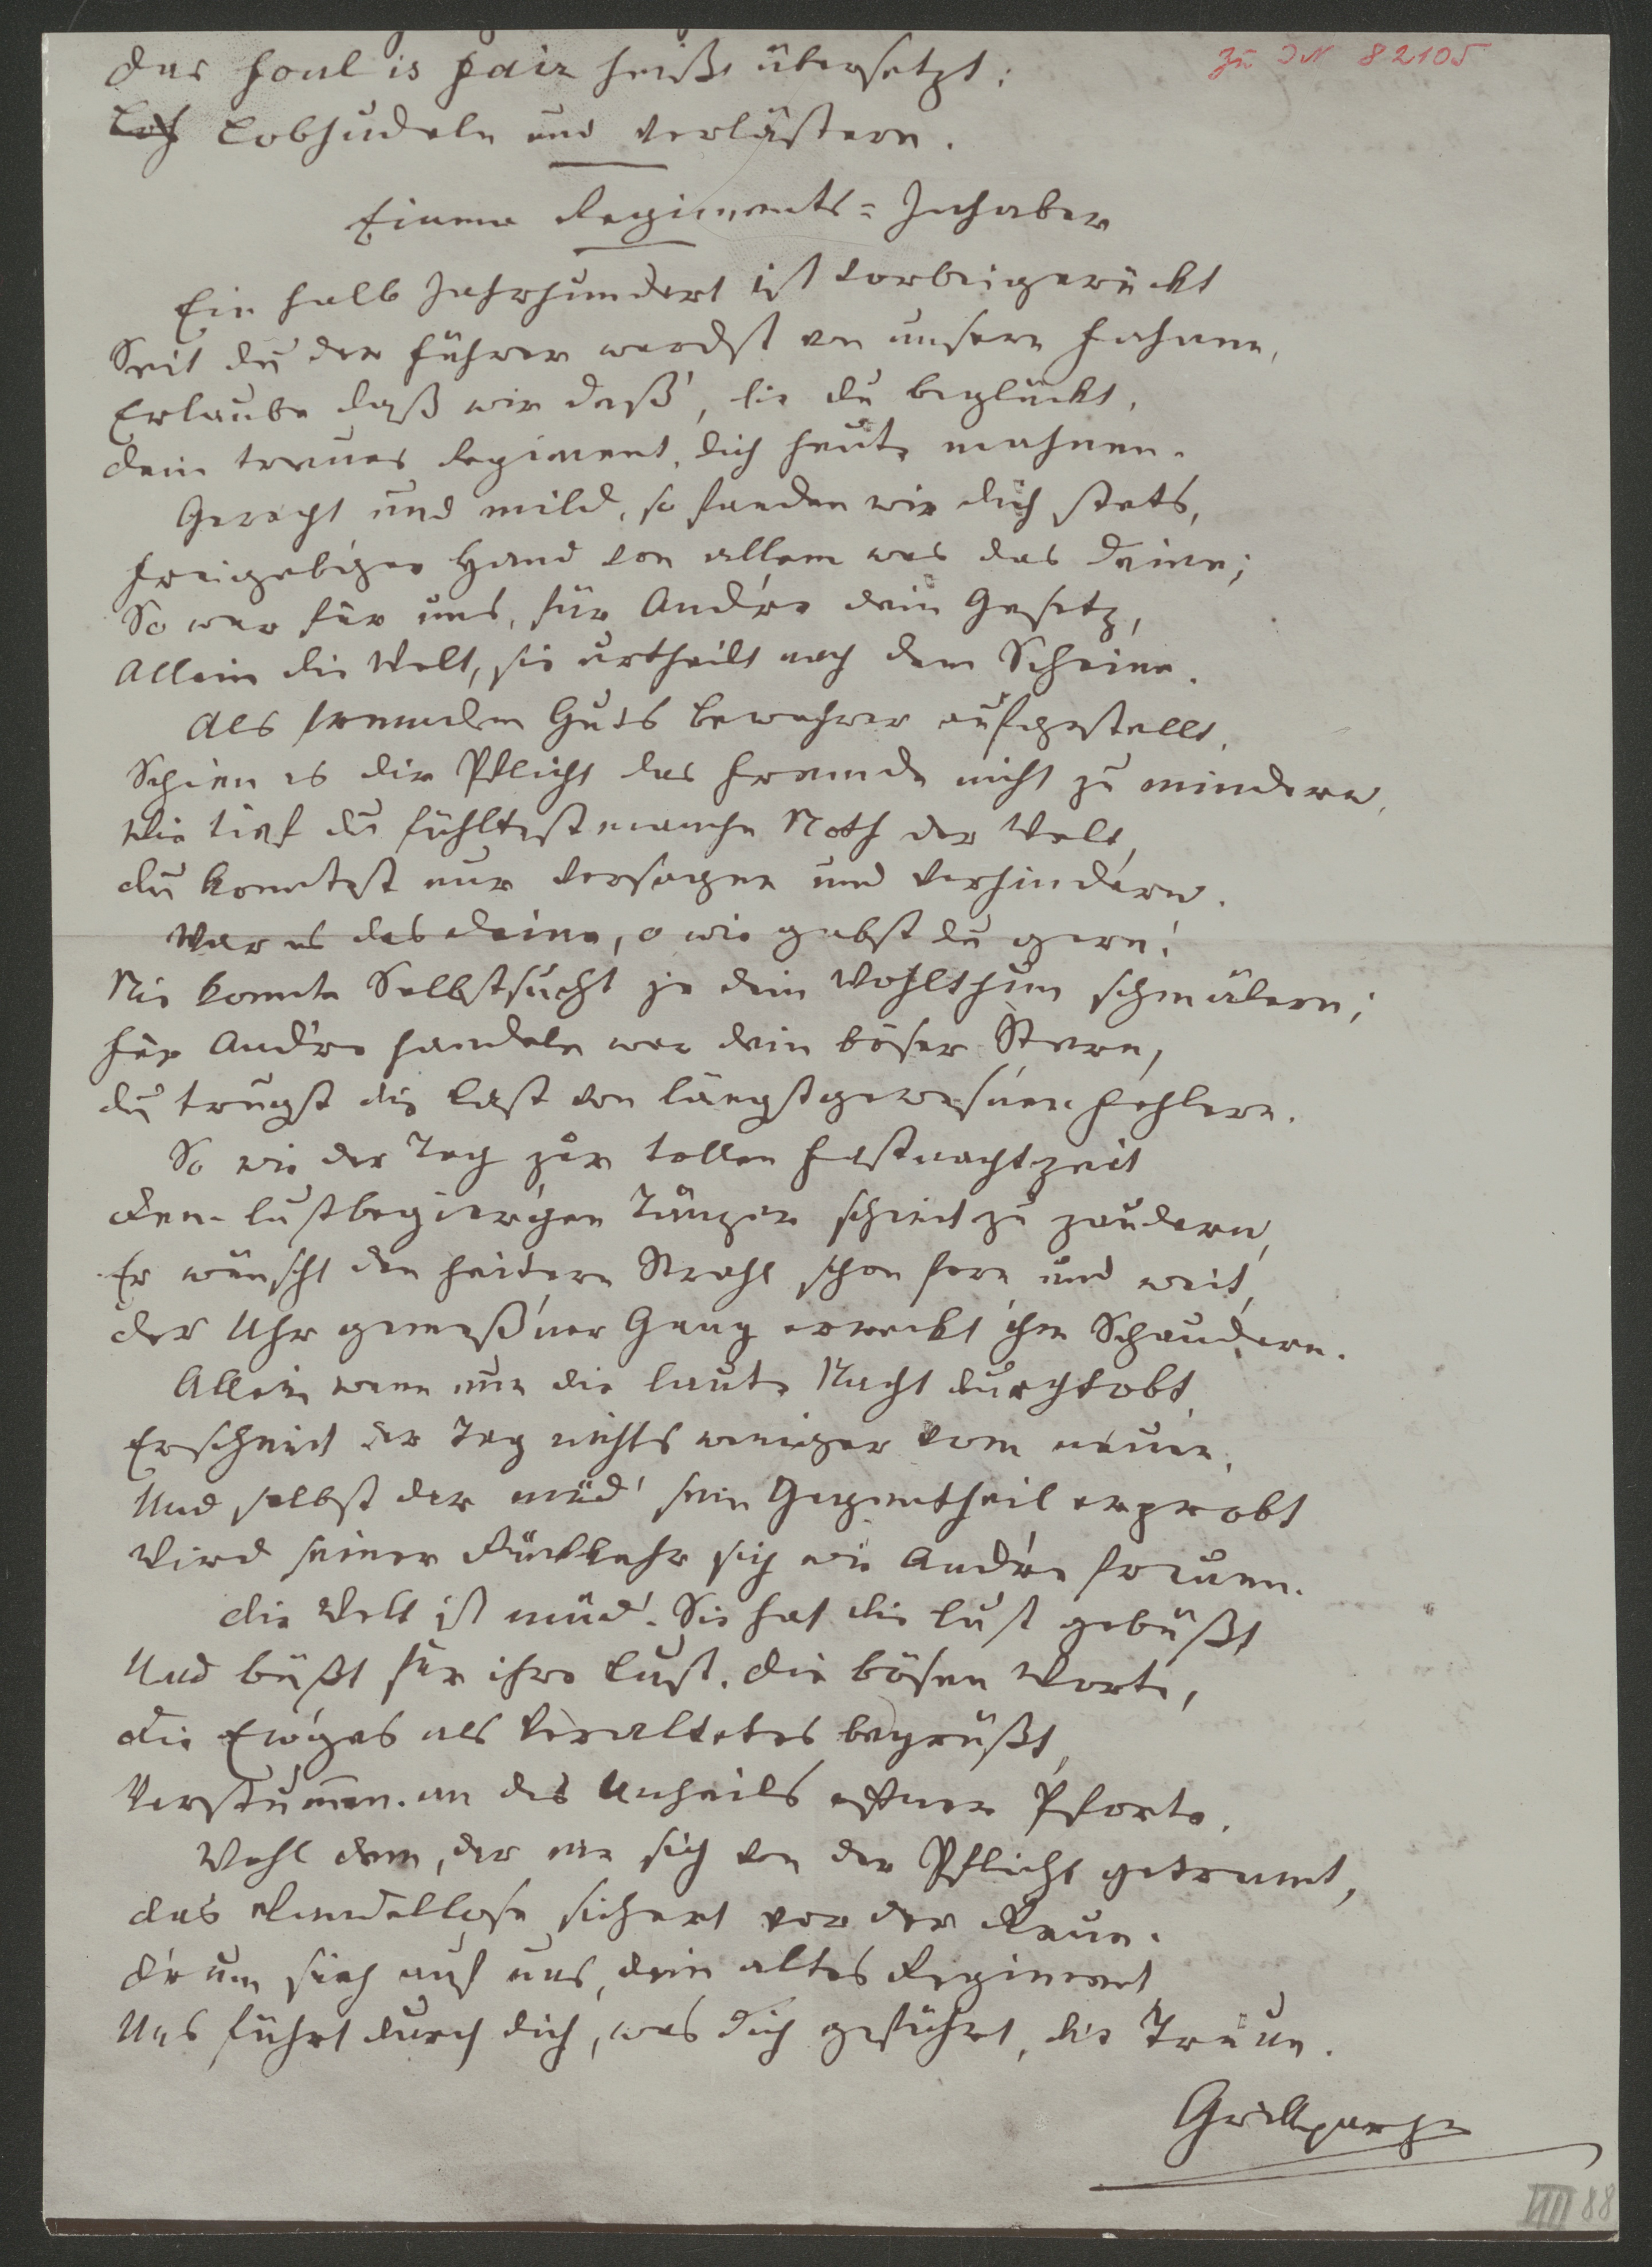 zu IN 82105
Das foul is fair heißt übersetzt:
Lob Lobhudeln und verlästern.
Einem Regiments-Inhaber
Ein halb Jahrhundert ist vorbeigerückt
Seit du der Führer wardst von unsern Fahnen,
Erlaube daß wir deß', die du beglückt,
Dein treues Regiment, dich heute mahnen.
Gerecht und mild, so fanden wir dich stets,
Freigebiger Hand von allem was das Deine;
So war für uns, für Andre dein Gesetz,
Allein die Welt, sie urtheilt nach dem Scheine.
Als fremden Guts Bewahrer aufgestellt,
Schien es dir Pflicht das Fremde nicht zu mindern,
Wie tief du fühltest manche Noth der Welt,
Du konntest nur versagen und verhindern.
War es das deine, o wie gabst du gern!
Nie konnte Selbstsucht je dein Wohlthun schmälern;
Für Andre handeln war dein böser Stern,
Du trugst die Last von längstgewes'nen Fehlern.
So wie der Tag zur tollen Fastnachtzeit
Dem lustbegier'gen Tänzer scheint zu zaudern,
Er wünscht den heitern Strahl schon fern und weit,
Der Uhr gemeß'ner Gang erweckt ihm Schaudern.
Allein wenn nun die laute Nacht durchtobt,
Erscheint der Tag nichts weniger vom neuen,
Und selbst der müd' sein Gegentheil erprobt
Wird seiner Rückkehr sich wie Andre freuen.
Die Welt ist müd'. Sie hat die Lust gebüßt
Und büßt für ihre Lust. Die bösen Worte,
Die Ew'ges als Veraltetes begrüßt,
Verstummen an des Unheils offner Pforte.
Wohl dem, der nie sich von der Pflicht getrennt,
Das Wandellose sichert vor der Reue.
Drum sieh auf uns, dein altes Regiment
Uns führt durch dich, was dich geführt, die Treue.
Grillparzer
VIII 88